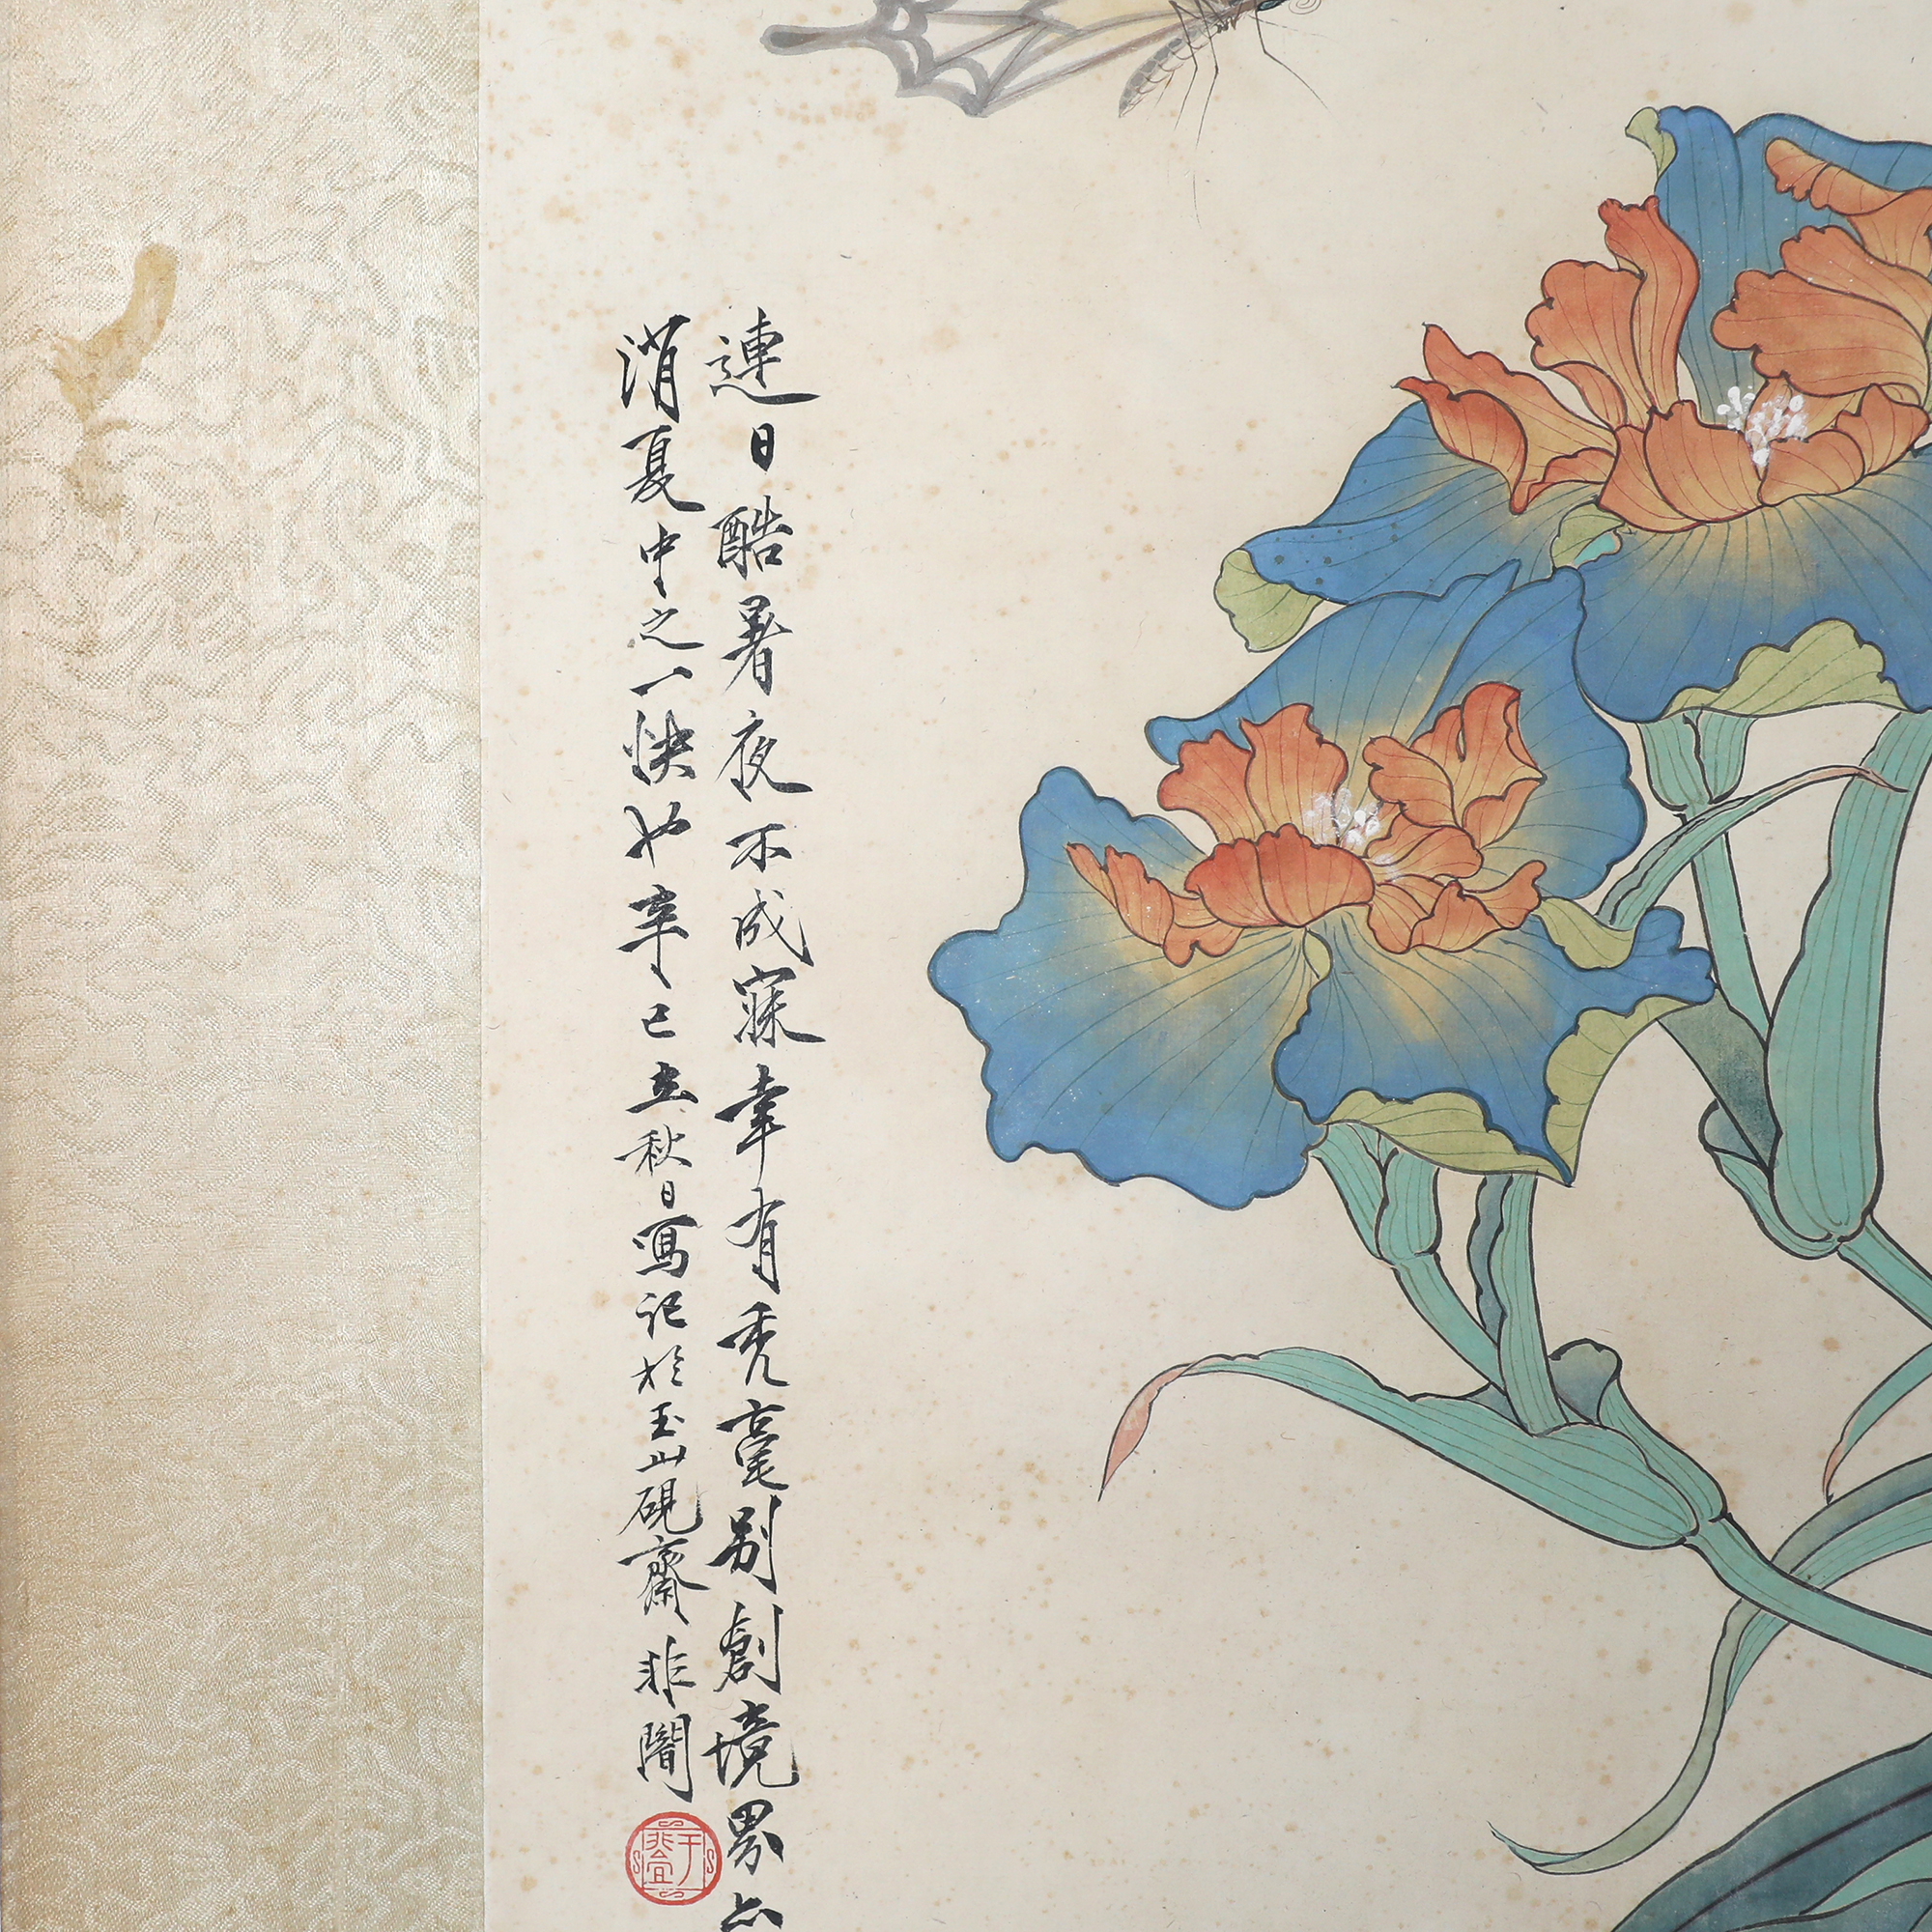 連日酷暑夜不成寐幸有禿毫別創境界亦
消夏中之一快也辛巳立秋日寫記於玉山硯齋非闇